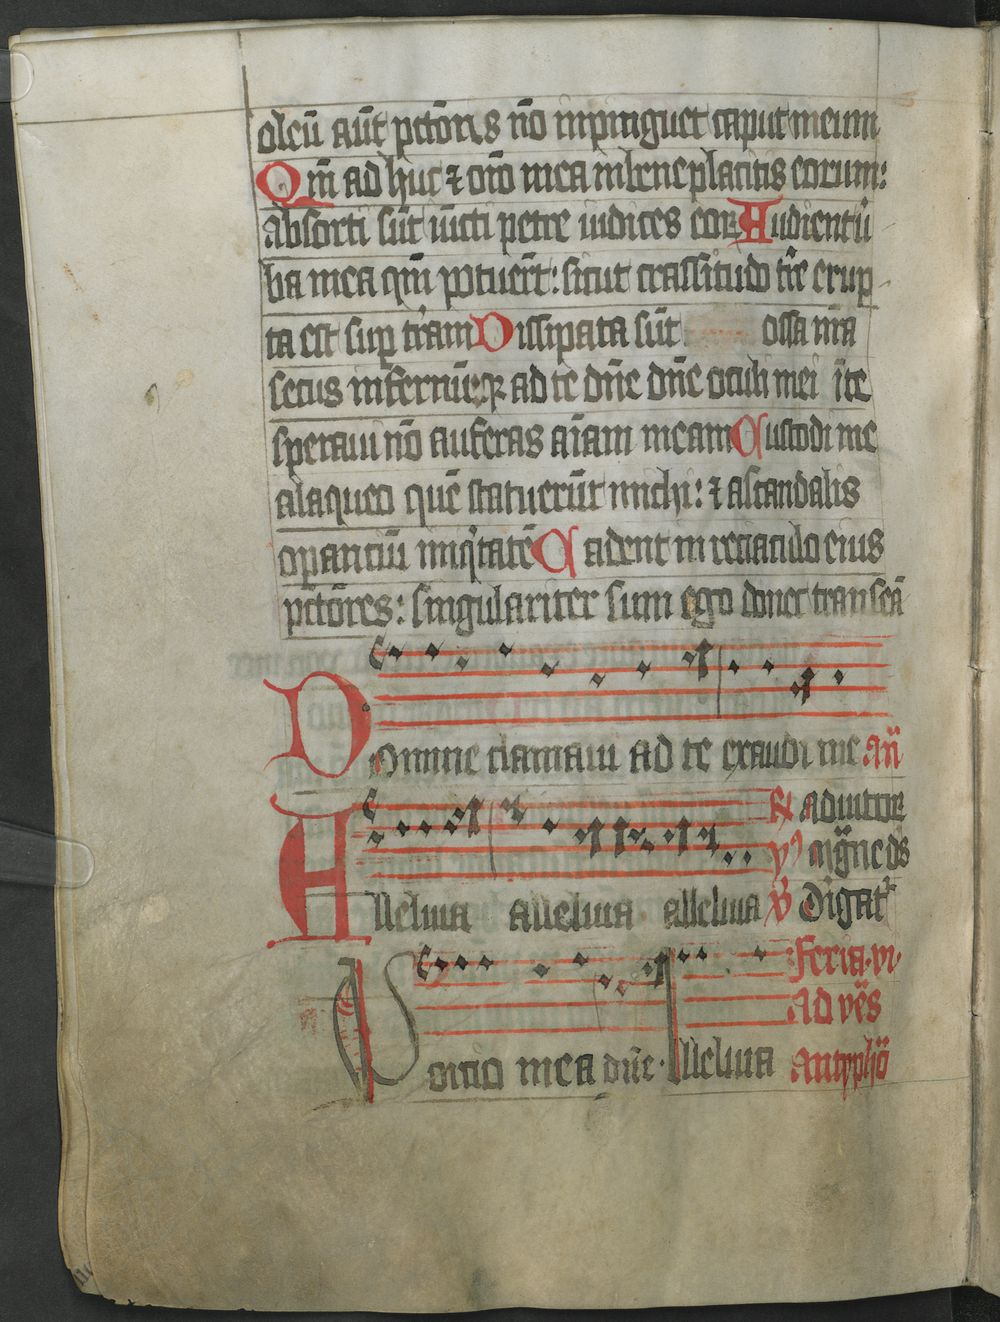 oleū aūt pctōris nō inpinguet caput meum
Qm̄ ad huc ⁊ orō mea in beneplacitis eorum:
absorti sūt iūcti petre iudices eoꝝ Audientū
ba mea qm̄ potuerūt: sicut crassitudo tr̄e erup
ta est sup̱ tr̄am Dissipata sūt ossa nr̄a
secus infernū: qꝛ ad te dn̄e dn̄e oculi mei īte
speraui nō auferas aīam meam Custodi me
alaqueo quē statuerūt michi: ⁊ ascandalis
oꝑantiū iniqͥtatē Cadent in reciaculo eius
pctōres: singulariter sum ego donec transeā
Domine clamaui ad te exaudi me an̄
Alleluia alleluia alleluia
R adiutor
dīgat
Portio mea dn̄e. Alleluia
Feria.vi.
Ad vēs